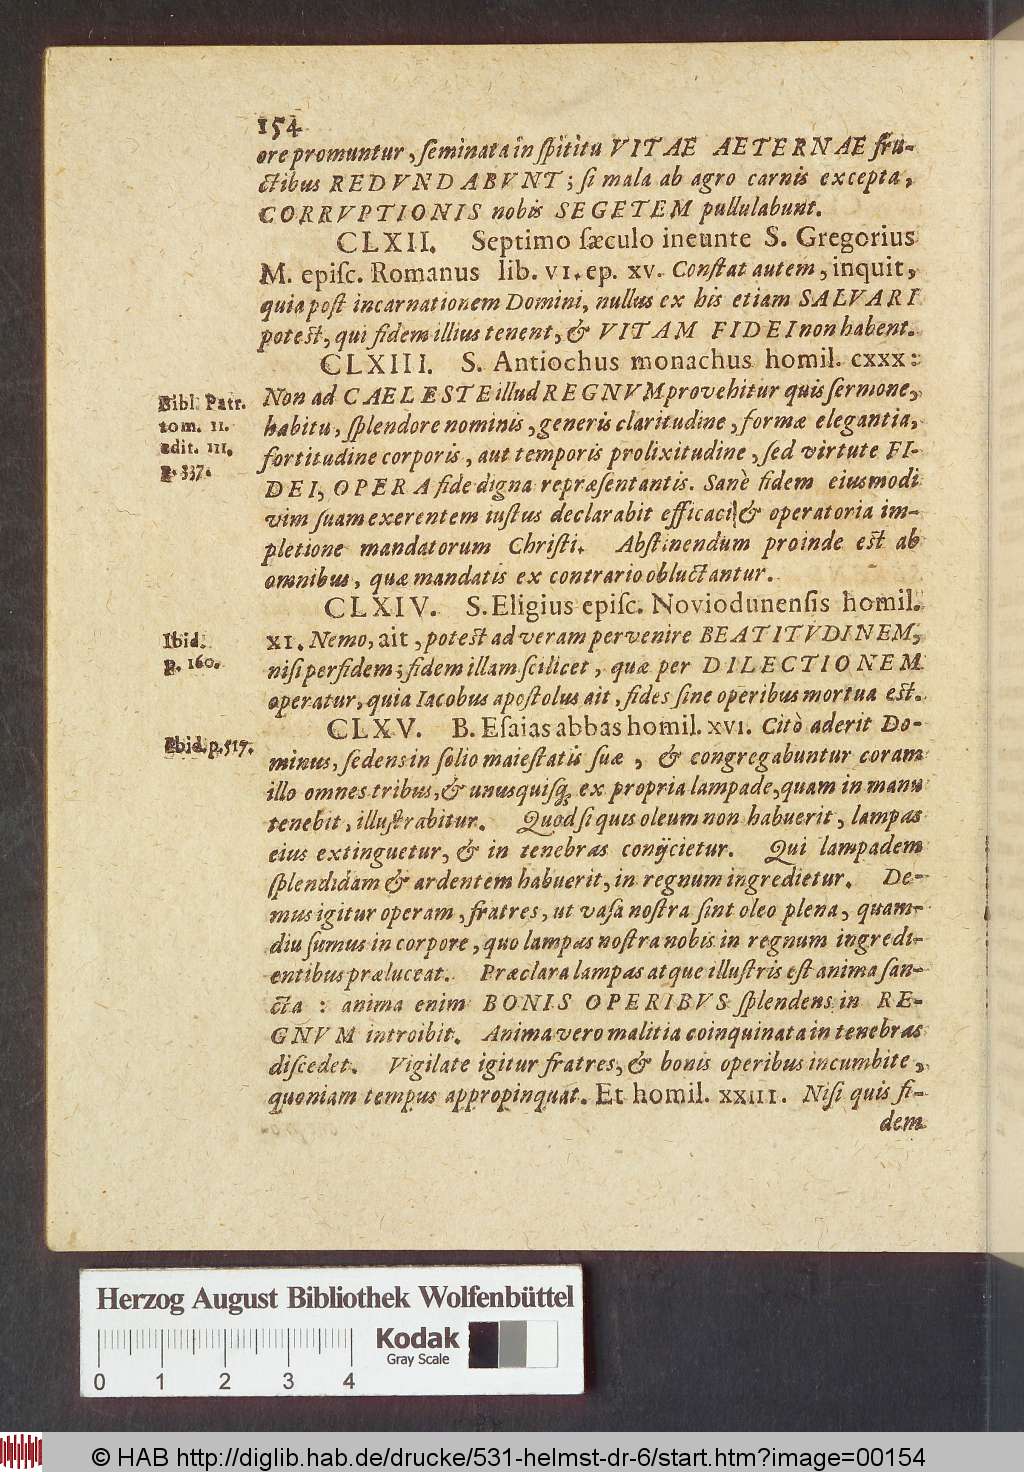 154
ore promuntur, ſeminata in ſpititu VITAE AETERNAE fru-
ctibus REDVNDABVNT; ſi mala ab agro carnis excepta,
CORRVPTIONIS nobis SEGETEM pullulabunt.
CLXII. Septimo ſæculo ineunte S. Gregorius
M. epiſc. Romanus lib. VI. ep. XV. Conſtat autem, inquit,
quia poſt incarnationem Domini, nullus ex his etiam SALVARI
poteſt, qui fidem illius tenent, & VITAM FIDEI non habent.
CLXIII. S. Antiochus monachus homil. CXXX:
Bibl. Patr.
tom. II.
edit. III.
p. 337.
Non ad CAELESTE illud REGNVM provehitur quis ſermone,
habitu, ſplendore nominis, generis claritudine, formæ elegantia,
fortitudine corporis, aut temporis prolixitudine, ſed virtute FI-
DEI, OPERA fide digna repræſentantis. Sanè fidem eiusmodi
vim ſuam exerentem iuſtus declarabit efficaci & operatoria im-
pletione mandatorum Chriſti. Abſtinendum proinde eſt ab
omnibus, quæ mandatis ex contrario obluctantur.
CLXIV. S. Eligius epiſc. Noviodunenſis homil.
Ibid.
p. 160.
XI. Nemo, ait, poteſt ad veram pervenire BEATITVDINEM,
niſi per fidem; fidem illam ſcilicet, quæ per DILECTIONEM
operatur, quia Iacobus apoſtolus ait, fides ſine operibus mortua eſt.
Ibid. p. 517.
CLXV. B. Eſaias abbas homil. XVI. Citò aderit Do-
minus, ſedens in ſolio maieſtatis ſuæ, & congregabuntur coram
illo omnes tribus, & unusquiſq; ex propria lampade, quam in manu
tenebit, illuſtrabitur. Quod ſi quis oleum non habuerit, lampas
eius extinguetur, & in tenebras conijcietur. Qui lampadem
ſplendidam & ardentem habuerit, in regnum ingredietur. De-
mus igitur operam, fratres, ut vaſa noſtra ſint oleo plena, quam-
diu ſumus in corpore, quo lampas noſtra nobis in regnum ingredi-
entibus præluceat. Præclara lampas atque illuſtris eſt anima ſan-
cta: anima enim BONIS OPERIBVS ſplendens in RE-
GNVM introibit. Anima vero malitia coinquinata in tenebras
diſcedet. Vigilate igitur fratres, & bonis operibus incumbite,
quoniam tempus appropinquat. Et homil. XXIII. Niſi quis fi-
dem
Herzog August Bibliothek Wolfenbüttel
Kodak
Gray Scale
0 1 2 3 4
© HAB http://diglib.hab.de/drucke/531-helmst-dr-6/start.htm?image=00154